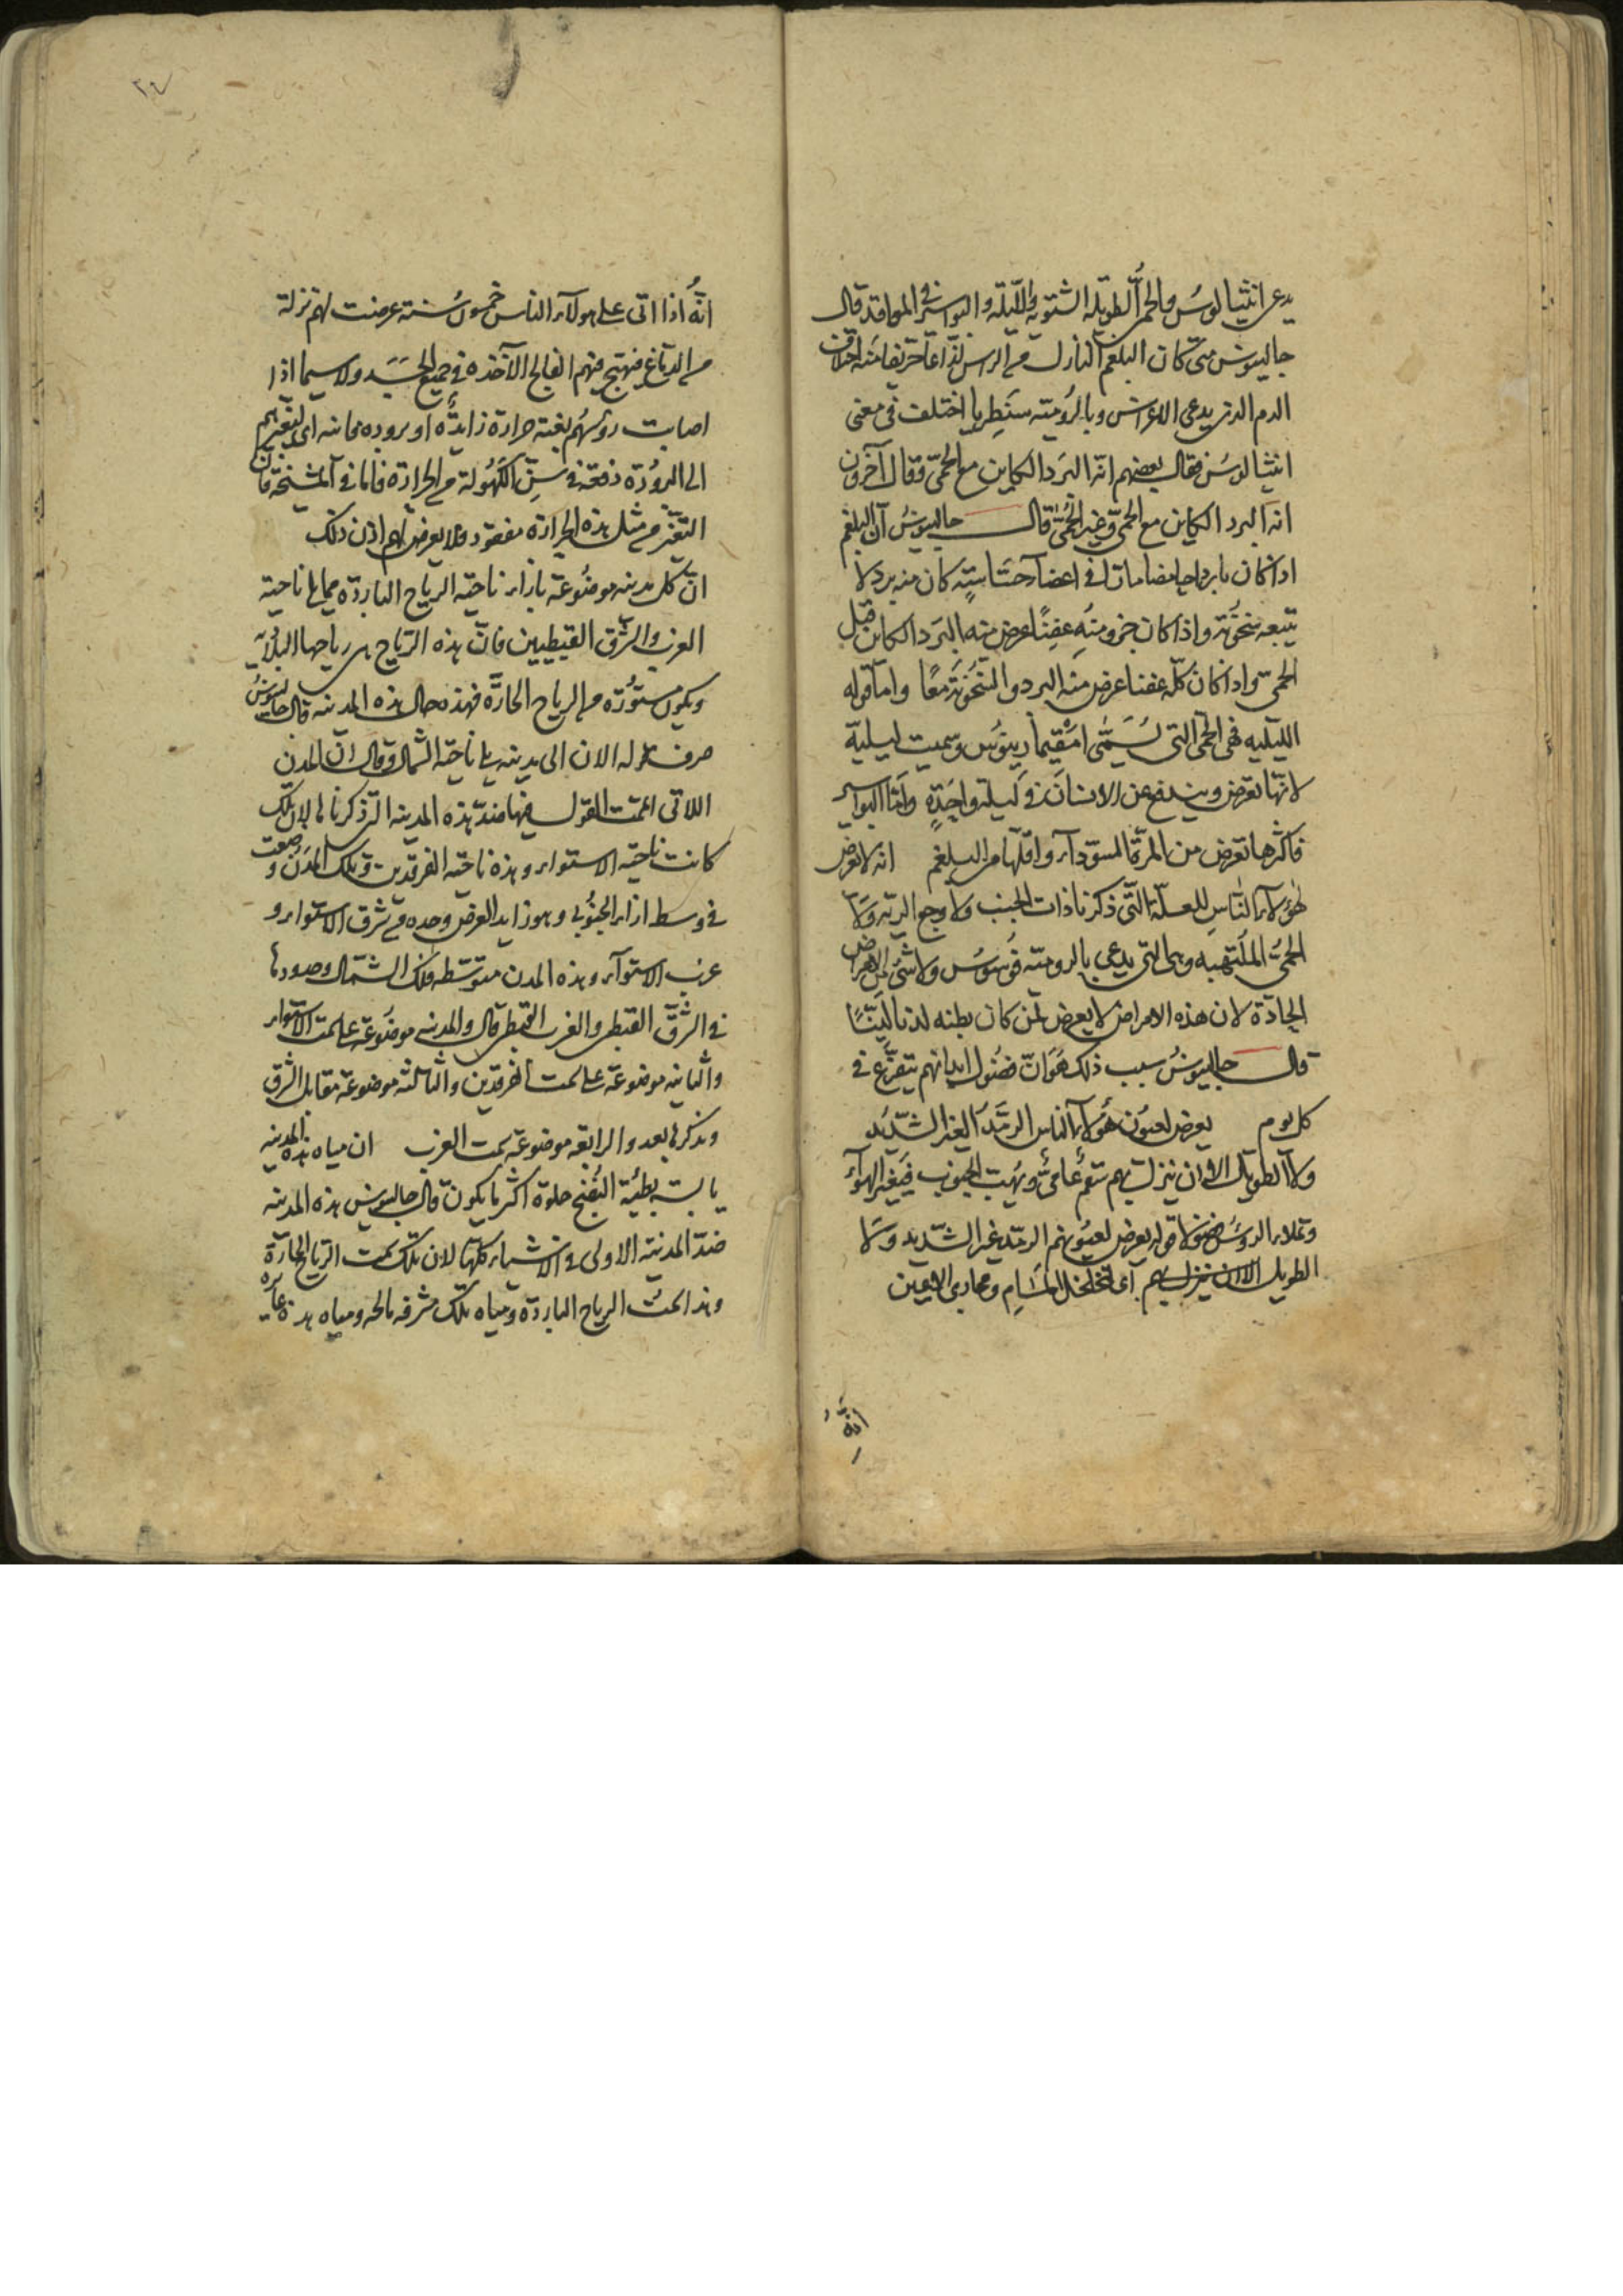 يدعى انثيالوس والحمى الطويلة الشتوية والليلية والبواسير في المواقد قال
جالينوس متى كان البلغم النازل من الراس لذاعا حريفا منه اختلاف
الدم الذي يدعى الاغراس وبالرومية سنطريا اختلف في معنى
انثيالوس فقال بعضهم انه البرد الكاين مع الحمى وقال آخرون
انه البرد الكاين مع الحمى وغير الحمى قال جالينوس ان البلغم
اذا كان باردا حامضا مات في اعضا حساسية كان منه برد لا
تتبعه سخونة واذا كان جزو منه عفنا عرض منه البرد الكاين قبل
الحمى واذا كان كله عفنا عرض منه البرد والسخونة معا واما قوله
الليلية فهى الحمى التي تسمى امقيمارينوس وسميت ليلية
لانها تعرض ويندفع عن الانسان في ليلة واحدة واما البواسير
فاكثرها تعرض من المرة السوداء واقلها من البلغم انه لا تعرض
لهولاء الناس للعلة التي ذكرنا ذات الجنب ولا وجع الرية ولا
الحمى الملتهبه وهى التي يدعى بالرومية قوسوس ولا شئ من الامراض
الحادة لان هذه الامراض لا يعرض لمن كان بطنه لدنا لينا
قال جالينوس سبب ذلك هو ان فضول ابدانهم يتفرغ في
كل يوم يعرض لعيون هؤلاء الناس الرمد الغير الشديد
ولا الطويل الا ان ينزل بهم سقم عامى وتهب الجنوب فيغير الهواء
وتملاء الروس فضولا قوله يعرض لعيونهم الرمد غير الشديد ولا
الطويل الا ان ينزل بهم اى لتخلخل المسام ومجارى العين
انه
انه اذا اتى على هولاء الناس خمسون سنة عرضت لهم نزلة
من الدماغ فتهيج منهم الفالج الآخذة في جميع الجسد ولا سيما اذا
اصابت رؤسهم بغتة حرارة زايدة او برودة مجانبة اى لتغيرهم
الى البرودة دفعة في سن الكهولة من الحرارة فاما في المشيخة فان
التغير من مثل هذه الحرارة مفقود فلا يعرض لهم اذن ذلك
ان كل مدينة موضوعة بازاء ناحية الرياح الباردة مما يلي ناحية
الغرب والشرق القيظيين فان هذه الرياح هى رياحها البلدية
ويكون مستورة من الرياح الحارة فهذه حال هذه المدينة قال جالينوس
صرف قوله الان الى مدينة يلي ناحية الشمال وقال ان المدن
اللاتى اتممت القول فيها ضد هذه المدينة التي ذكرناها لان تلك
كانت ناحية الاستواء وهذه ناحية الفرقدين وتلك المدن وضعت
في وسط ازاء الجنوبى وهو زايد العرض وحده من شرق الاستواء و
غرب الاستواء وهذه المدن متوسطة فلك الشمال وحدودها
في الشرق القيظى والغرب القيظى قال والمدينة موضوعة على سمت الاستواء
والثانية موضوعة على سمت الفرقدين والثالثة موضوعة مقابل الشرق
ونذكرها بعد والرابعة موضوعة سمت الغرب ان مياه هذه المدينة
يابسة بطيئة النضج حلوة اكثر ما يكون قال جالينوس هذه المدينة
ضد المدينة الاولى في الاشياء كلها لان تلك سمت الرياح الحارة
وهذا سمت الرياح الباردة ومياه تلك مشرفة مالحة ومياه هذه غايرة